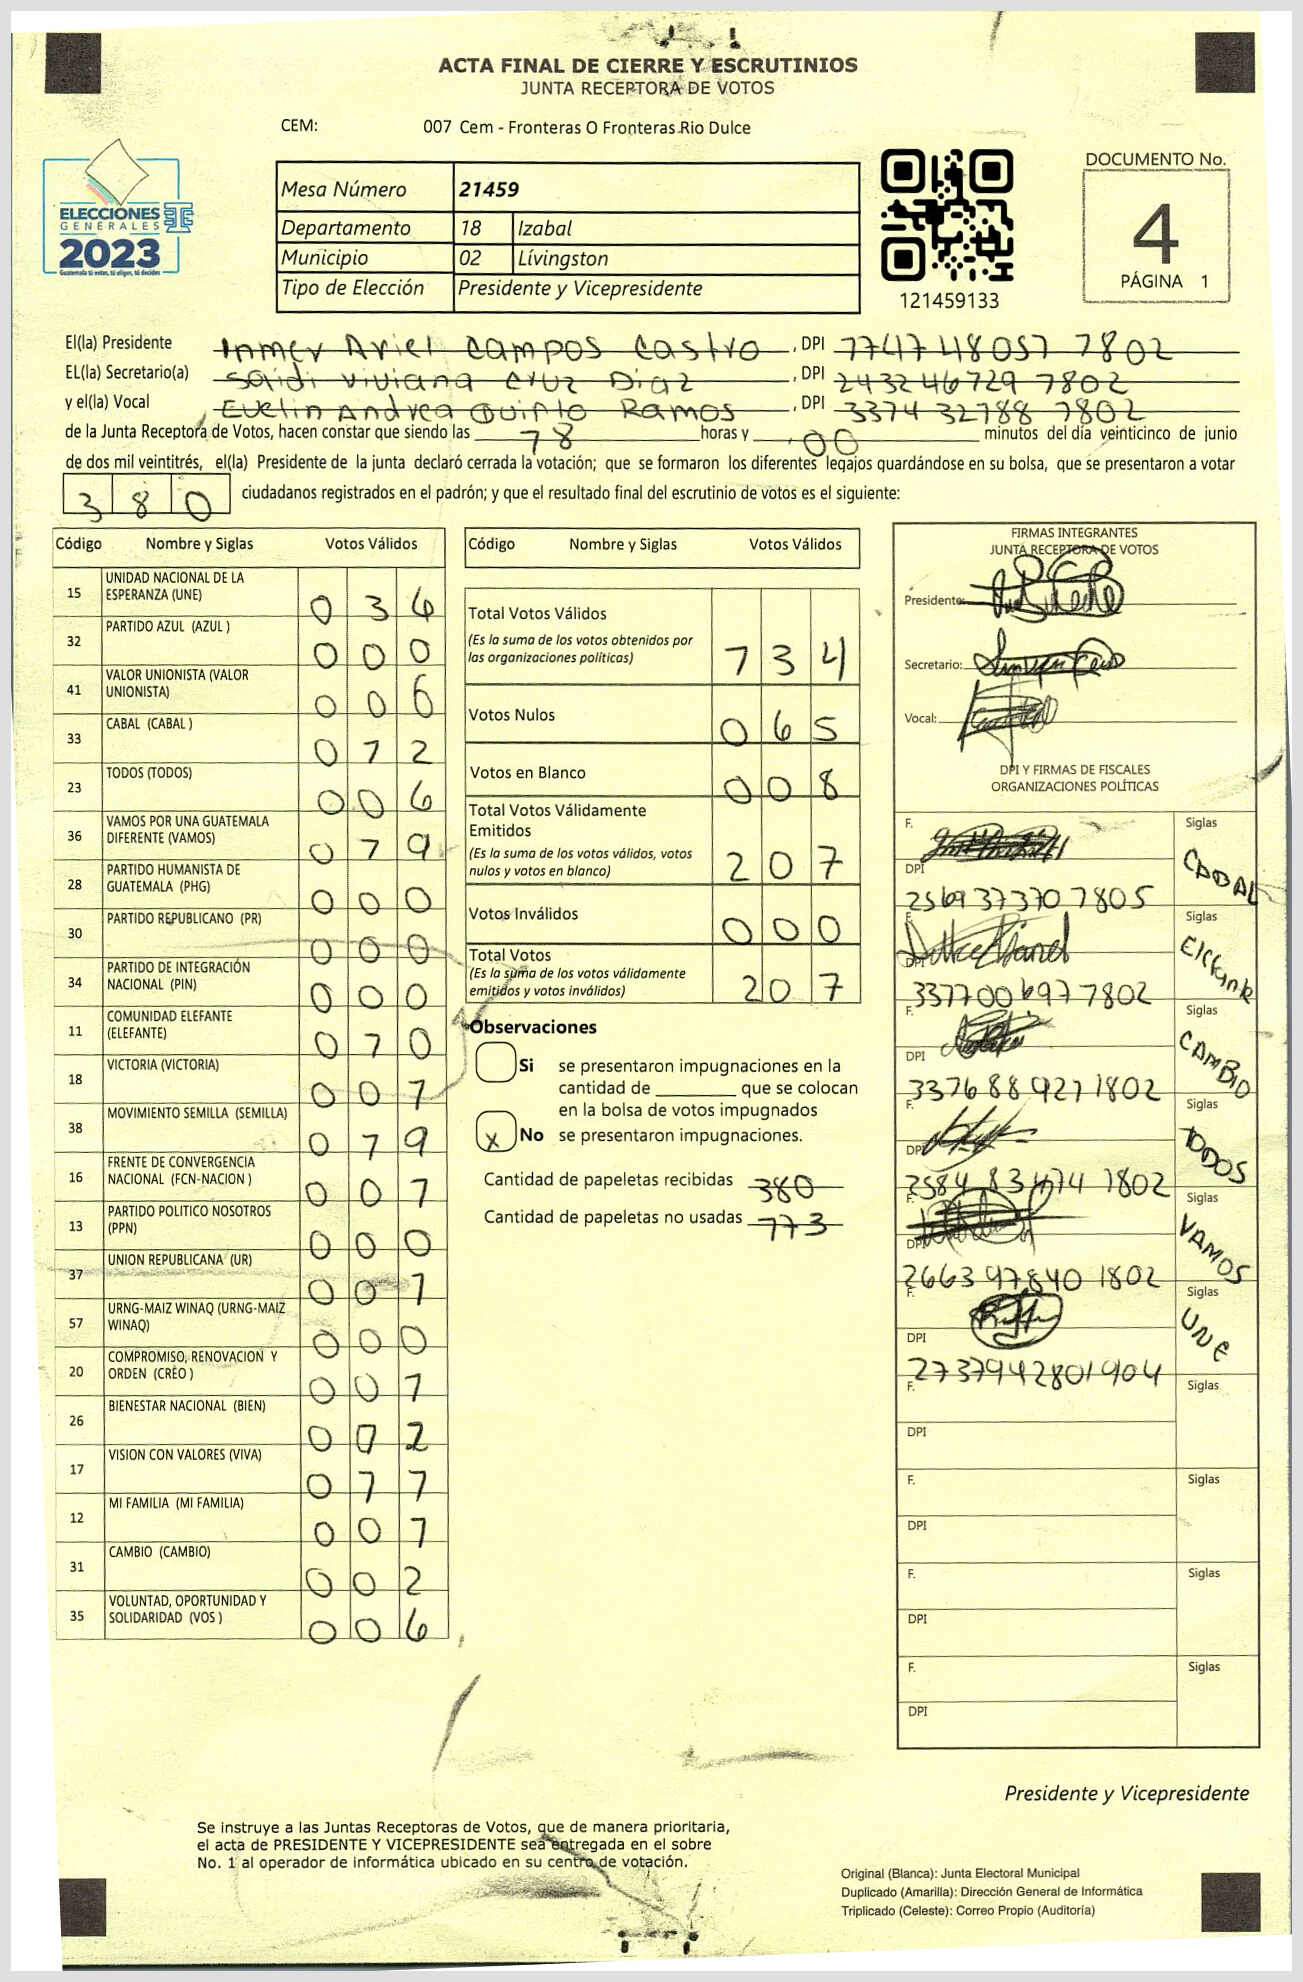 ACTA FINAL DE CIERRE Y ESCRUTINIOS
JUNTA RECEPTORA DE VOTOS
CEM: 007 Cem - Fronteras O Fronteras Rio Dulce
ELECCIONES
GENERALES
2023
Guatemala tú votas, tú eliges, tú decides
Mesa Número 21459
Departamento 18 Izabal
Municipio 02 Lívingston
Tipo de Elección Presidente y Vicepresidente
121459133
DOCUMENTO No.
4
PÁGINA 1
El(la) Presidente Inmer Ariel Campos Castro , DPI 1802
EL(la) Secretario(a) Saidi Viviana Cruz Diaz , DPI 2432 1802
y el(la) Vocal Evelin Andrea Quinto Ramos , DPI 1802
de la Junta Receptora de Votos, hacen constar que siendo las 18 horas y 00 minutos del día veinticinco de junio
de dos mil veintitrés, el(la) Presidente de la junta declaró cerrada la votación; que se formaron los diferentes legajos guardándose en su bolsa, que se presentaron a votar
380 ciudadanos registrados en el padrón; y que el resultado final del escrutinio de votos es el siguiente:
Código Nombre y Siglas Votos Válidos
15 UNIDAD NACIONAL DE LA
ESPERANZA (UNE) 036
32 PARTIDO AZUL (AZUL ) 000
41 VALOR UNIONISTA (VALOR
UNIONISTA) 006
33 CABAL (CABAL ) 012
23 TODOS (TODOS) 006
36 VAMOS POR UNA GUATEMALA
DIFERENTE (VAMOS) 019
28 PARTIDO HUMANISTA DE
GUATEMALA (PHG) 000
30 PARTIDO REPUBLICANO (PR) 000
34 PARTIDO DE INTEGRACIÓN
NACIONAL (PIN) 000
11 COMUNIDAD ELEFANTE
(ELEFANTE) 010
18 VICTORIA (VICTORIA) 001
38 MOVIMIENTO SEMILLA (SEMILLA) 019
16 FRENTE DE CONVERGENCIA
NACIONAL (FCN-NACION ) 001
13 PARTIDO POLITICO NOSOTROS
(PPN) 000
37 UNION REPUBLICANA (UR) 001
57 URNG-MAIZ WINAQ (URNG-MAIZ
WINAQ) 000
20 COMPROMISO, RENOVACION Y
ORDEN (CREO ) 001
26 BIENESTAR NACIONAL (BIEN) 002
17 VISION CON VALORES (VIVA) 011
12 MI FAMILIA (MI FAMILIA) 001
31 CAMBIO (CAMBIO) 002
35 VOLUNTAD, OPORTUNIDAD Y
SOLIDARIDAD (VOS ) 006
Código Nombre y Siglas Votos Válidos
Total Votos Válidos
(Es la suma de los votos obtenidos por
las organizaciones políticas) 134
Votos Nulos 065
Votos en Blanco 008
Total Votos Válidamente
Emitidos
(Es la suma de los votos válidos, votos
nulos y votos en blanco) 207
Votos Inválidos 000
Total Votos
(Es la suma de los votos válidamente
emitidos y votos inválidos) 207
Observaciones
Si se presentaron impugnaciones en la
cantidad de ________ que se colocan
en la bolsa de votos impugnados
x No se presentaron impugnaciones.
Cantidad de papeletas recibidas 380
Cantidad de papeletas no usadas 173
FIRMAS INTEGRANTES
JUNTA RECEPTORA DE VOTOS
Presidente:
Secretario:
Vocal:
DPI Y FIRMAS DE FISCALES
ORGANIZACIONES POLÍTICAS
F. Siglas CABAL
DPI 2569 37370 1805
F. Siglas Elefante
DPI 1802
F. Siglas CAMBIO
DPI 3376 88927 1802
F. Siglas TODOS
DPI 2584 1802
F. Siglas VAMOS
DPI 2663 97840 1802
F. Siglas UNE
DPI 2737942801904
F. Siglas
DPI
F. Siglas
DPI
F. Siglas
DPI
F. Siglas
DPI
Presidente y Vicepresidente
Se instruye a las Juntas Receptoras de Votos, que de manera prioritaria,
el acta de PRESIDENTE Y VICEPRESIDENTE sea entregada en el sobre
No. 1 al operador de informática ubicado en su centro de votación.
Original (Blanca): Junta Electoral Municipal
Duplicado (Amarilla): Dirección General de Informática
Triplicado (Celeste): Correo Propio (Auditoría)